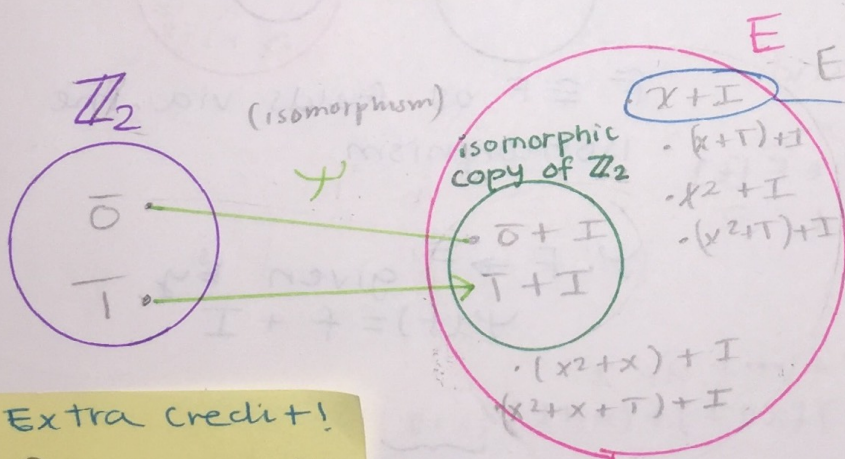 E
ℤ₂
(isomorphism)
x + I
E
isomorphic
copy of ℤ₂
· (x+1̄)+I
· x² + I
· (x²+1̄)+I
0̄
0̄ + I
1̄
1̄ + I
· (x²+x) + I
(x²+x+1̄)+I
Extra credit!